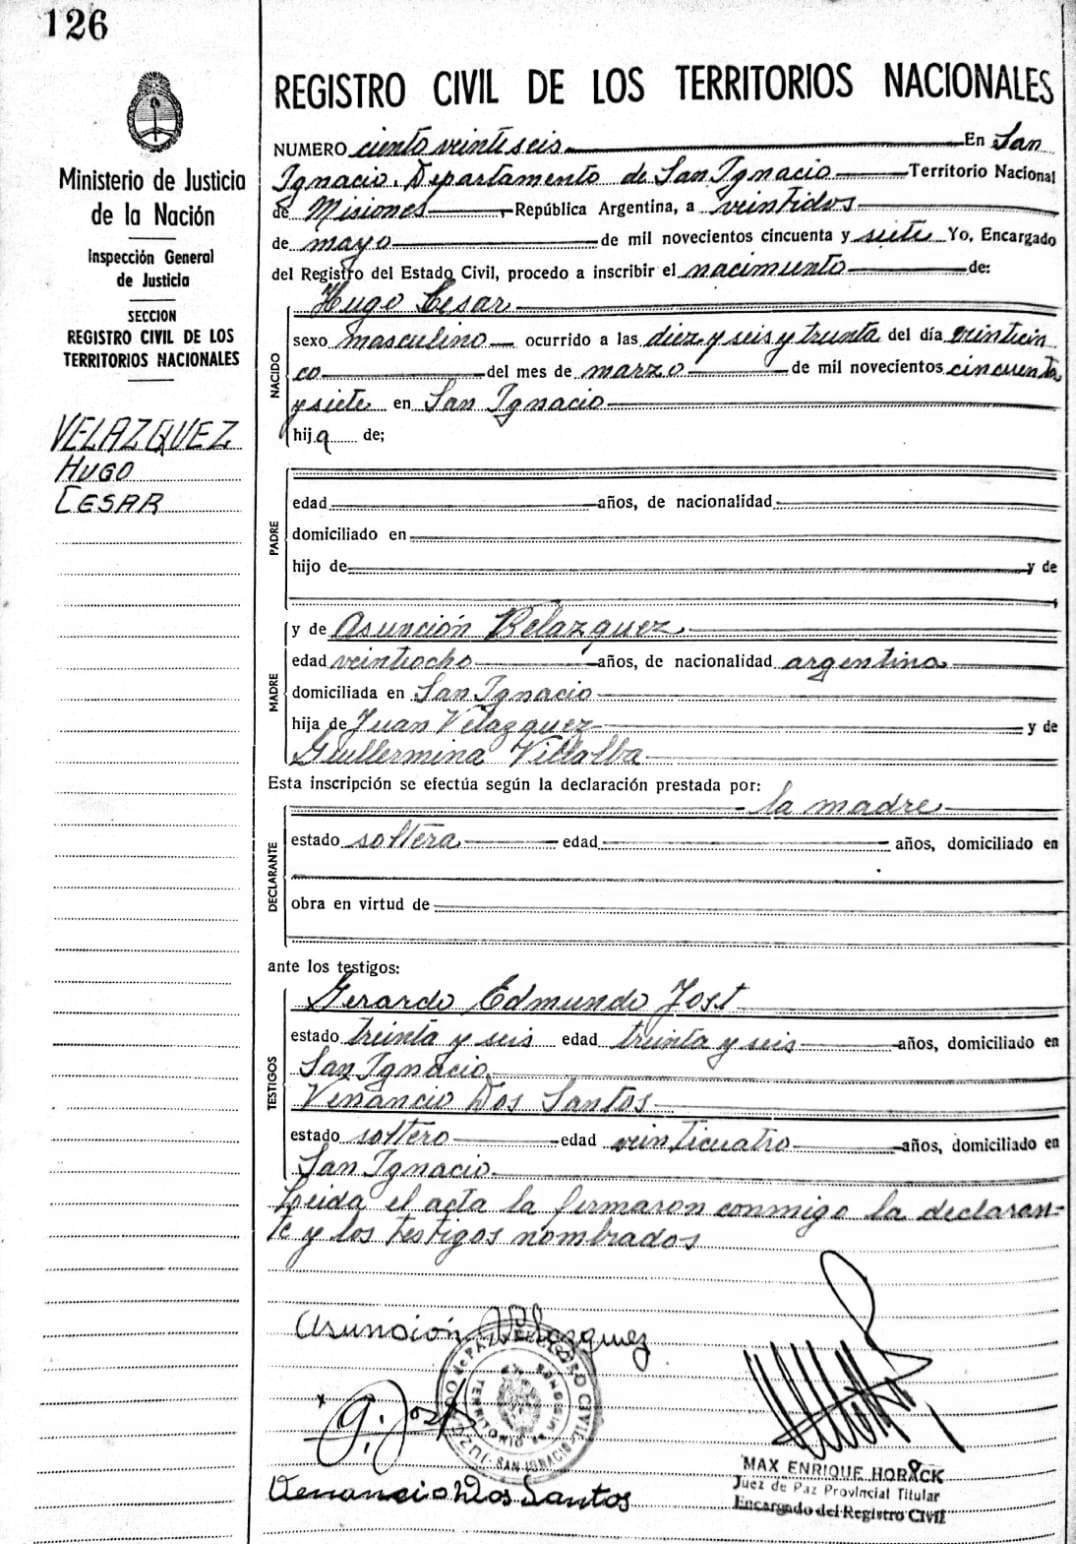 126
REGISTRO CIVIL DE LOS TERRITORIOS NACIONALES
Ministerio de Justicia
de la Nación
Inspección General
de Justicia
SECCION
REGISTRO CIVIL DE LOS
TERRITORIOS NACIONALES
VELAZQUEZ
HUGO
CESAR
NUMERO ciento veintiseis En San
Ignacio. Departamento de San Ignacio Territorio Nacional
de Misiones, República Argentina, a veintidos
de mayo de mil novecientos cincuenta y siete Yo, Encargado
del Registro del Estado Civil, procedo a inscribir el nacimiento de:
NACIDO
Hugo Cesar
sexo masculino ocurrido a las diez y seis y treinta del día veinticin
co del mes de marzo de mil novecientos cincuenta
y siete en San Ignacio
hijo de;
PADRE
edad años, de nacionalidad
domiciliado en
hijo de y de
MADRE
y de Asunción Velazquez
edad veintiocho años, de nacionalidad argentina
domiciliada en San Ignacio
hija de Juan Velazquez y de
Guillermina Villalba
Esta inscripción se efectúa según la declaración prestada por:
DECLARANTE
la madre
estado soltera edad años, domiciliado en
obra en virtud de
ante los testigos:
TESTIGOS
Gerardo Edmundo Jost
estado treinta y seis edad treinta y seis años, domiciliado en
San Ignacio
Venancio Dos Santos
estado soltero edad veinticuatro años, domiciliado en
San Ignacio
Leida el acta la firmaron conmigo la declaran-
te y los testigos nombrados
Asunción Velazquez
JUZGADO DE PAZ Y REGISTRO CIVIL
TERRITORIO DE MISIONES
SAN IGNACIO
G. Jost
Venancio Dos Santos
MAX ENRIQUE HORACK
Juez de Paz Provincial Titular
Encargado del Registro Civil